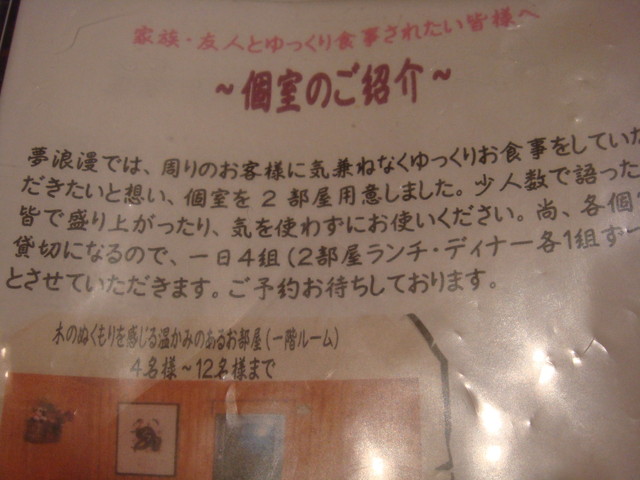 家族・友人とゆっくり食事されたい皆様へ
～個室のご紹介～
夢浪漫では、周りのお客様に気兼ねなくゆっくりお食事をしていた
だきたいと想い、個室を2部屋用意しました。少人数で語った
皆で盛り上がったり、気を使わずにお使いください。尚、各個
貸切になるので、一日4組(2部屋ランチ・ディナー各1組ずつ
とさせていただきます。ご予約お待ちしております。
木のぬくもりを感じる温かみのあるお部屋(一階ルーム)
4名様～12名様まで